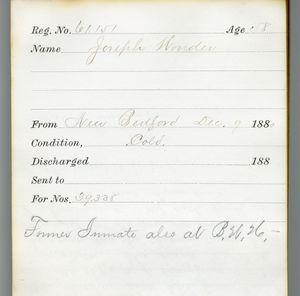 Reg. No. 61.151 Age
Name Joseph
From New Bedford Dec. 9 188
Condition, Cold.
Discharged 188
Sent to
For Nos. 29,338
Former Inmate also at B, W, H,-